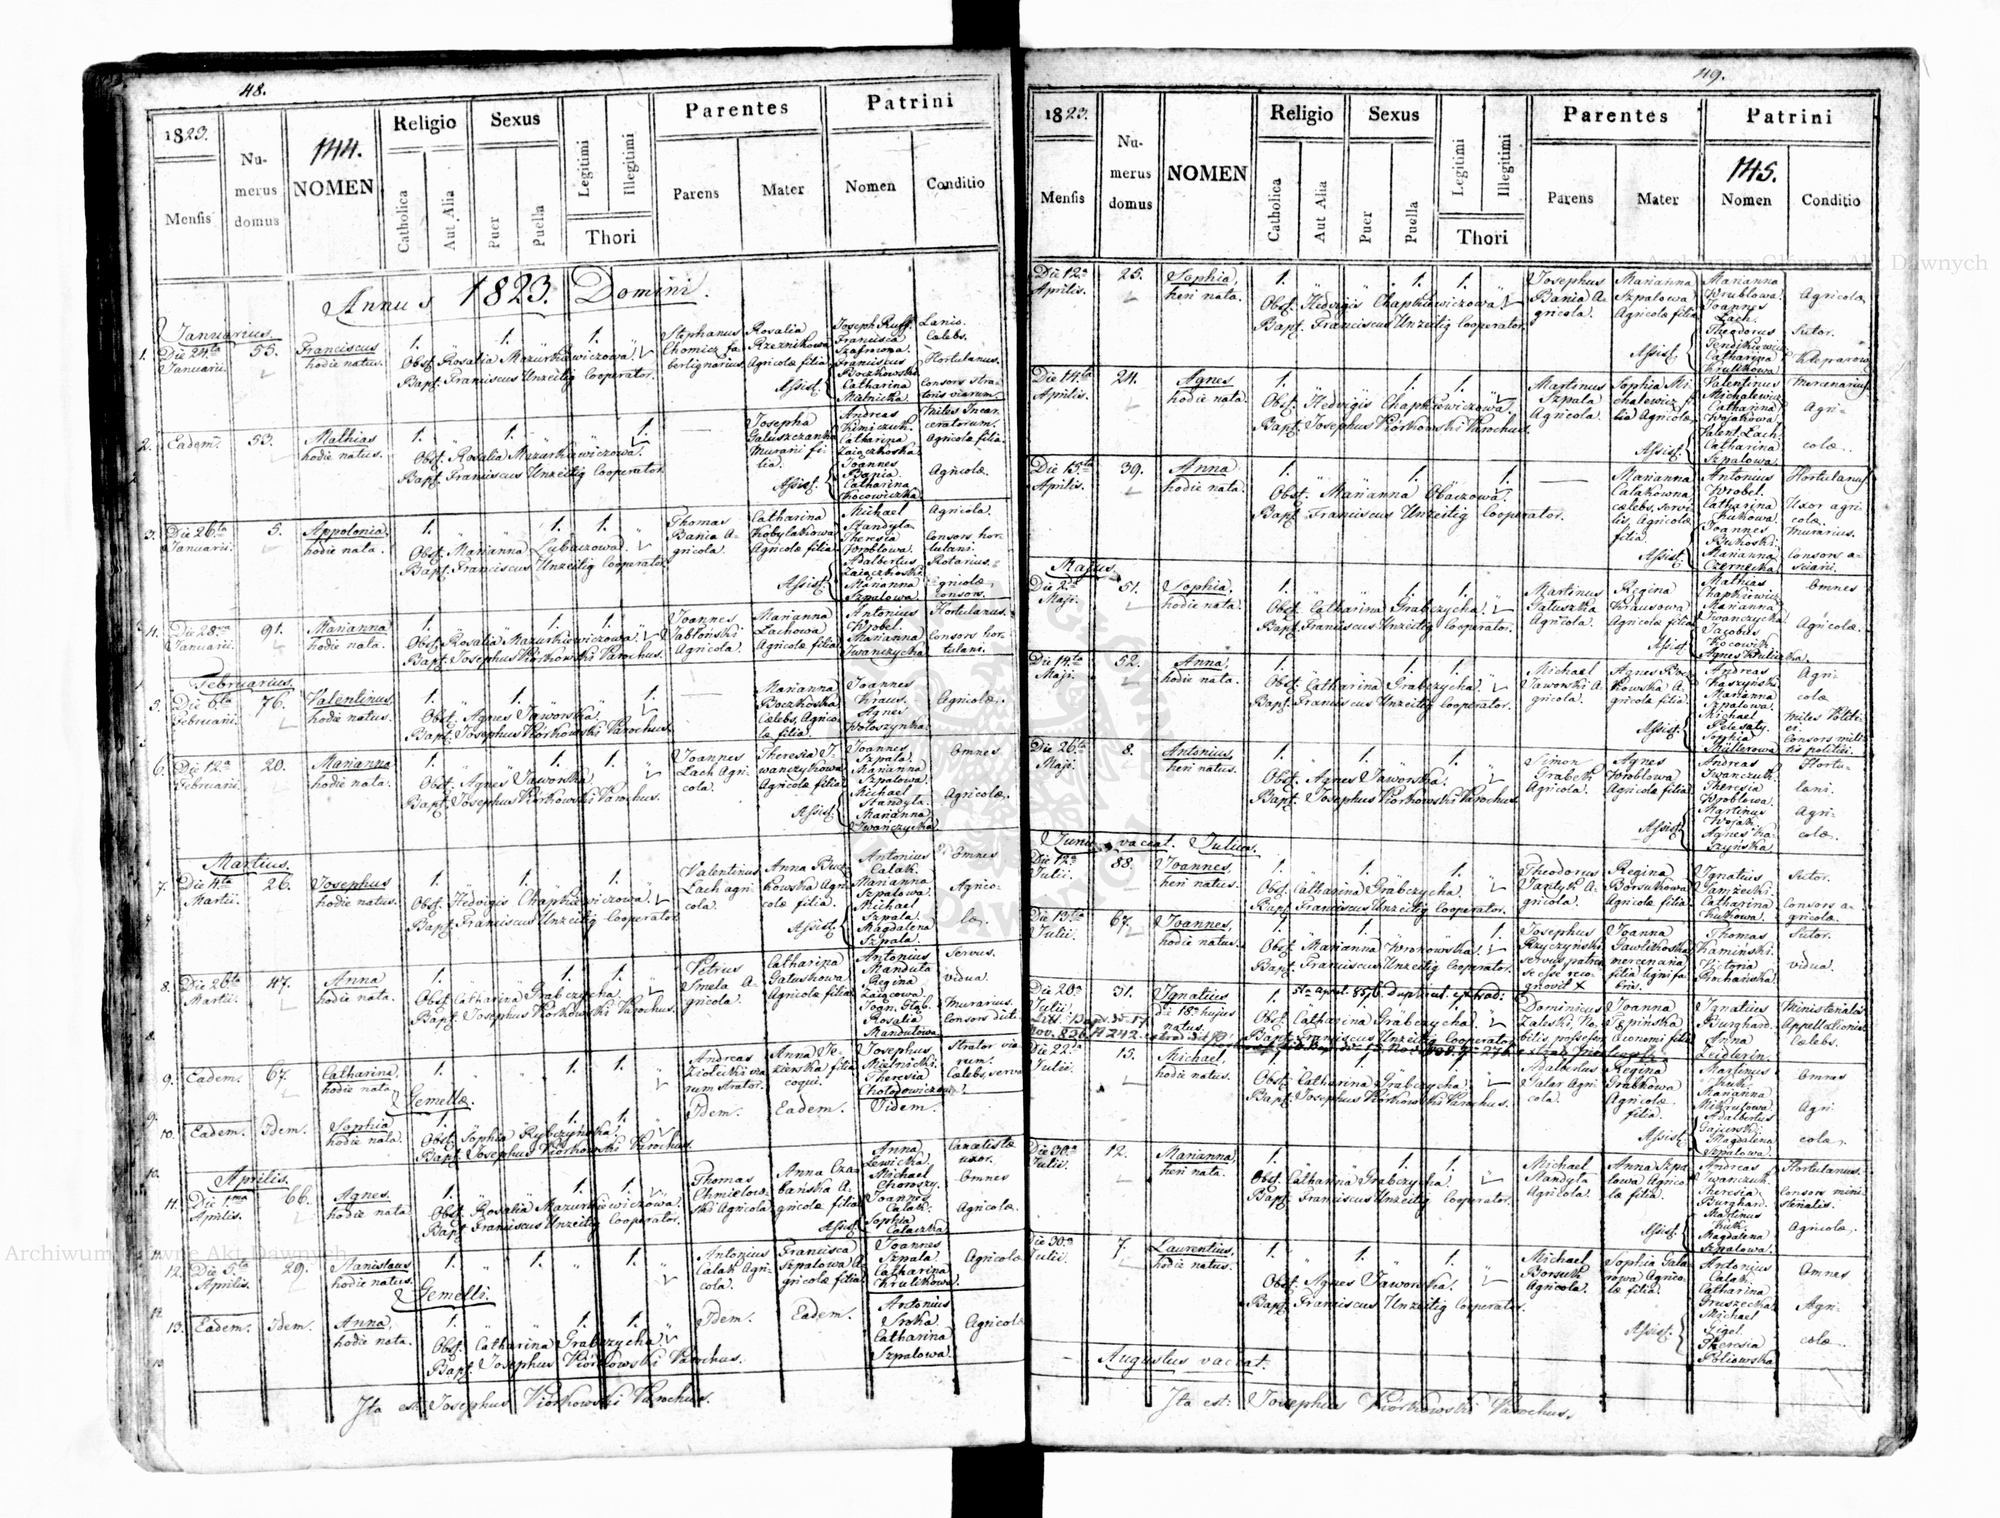 48.
1823.
Mensis
Numerus domus
144.
NOMEN
Religio
Catholica
Aut Alia
Sexus
Puer
Puella
Legitimi
Illegitimi
Thori
Parentes
Parens
Mater
Patrini
Nomen
Conditio
Annus 1823. Domini.
Januarius.
1. Die 24ta Januarii. 55. Franciscus hodie natus. 1. 1. 1.
Obst. Rosalia Mazurkiewiczowa.
Bapt. Franciscus Unzeitig Cooperator.
Stephanus Chomicz faberlignarius.
Rosalia Rzeznikowa Agricolæ filia
Joseph Ruff. Lanio. Cælebs.
Francisca Szafranna.
Franciscus Boczkowski Hortulanus.
Assist. Catharina Mielnicka. Consors stratoris viarum.
2. Eadem. 53. Mathias hodie natus. 1. 1. 1.
Obst. Rosalia Mazurkiewiczowa.
Bapt. Franciscus Unzeitig Cooperator.
Josepha Gałuszczanka Murarii filia.
Andreas Kimiczuk. Miles Incarceratorum.
Catharina Zaiączkoska Agricolæ filia
Assist. Joannes Bania Agricolæ
Catharina Kocowiczka
3. Die 26ta Januarii. 5. Appolonia, hodie nata. 1. 1. 1.
Obst. Marianna Lubaczowa.
Bapt. Franciscus Unzeitig Cooperator.
Thomas Bania Agricola.
Catharina Kobylakowa Agricolæ filia
Michael Handyla. Agricola.
Theresia Wroblowa. Consors hortulani.
Assist. Adalbertus Zaiączkoski Rotarius.
Marianna Szpalowa Agricolæ Consors.
4. Die 28va Januarii. 91. Marianna hodie nata. 1. 1. 1.
Obst. Rosalia Mazurkiewiczowa.
Bapt. Josephus Kiorkowski Parochus.
Joannes Jabłoński Agricola.
Marianna Lachowa Agricolæ filia
Antonius Wrobel. Hortulanus.
Marianna Iwanczycka Consors hortulani.
Februarius.
5. Die 6ta Februarii. 76. Valentinus, hodie natus. 1. 1. 1.
Obst. Agnes Jaworska,
Bapt. Josephus Kiorkowski Parochus.
Marianna Boczkoska Cælebs, Agricolæ filia.
Joannes Kraus. Agricolæ.
Agnes Wołoszynka.
6. Die 12a Februarii. 20. Marianna hodie nata. 1. 1. 1.
Obst. Agnes Jaworska,
Bapt. Josephus Kiorkowski Parochus.
Joannes Lach Agricola.
Theresia Iwanczykowa Agricolæ filia
Joannes Szpala. Omnes
Marianna Szpalowa.
Assist. Michael Handyla. Agricolæ.
Marianna Iwańczycka
Martius.
7. Die 4ta Martii. 26. Josephus hodie natus. 1. 1. 1.
Obst. Hedvigis Chapkiewiczowa.
Bapt. Franciscus Unzeitig Cooperator
Valentinus Lach agricola.
Anna Rutkowska Agricolæ filia.
Antonius Całak. Omnes
Marianna Szpalowa. Agricolæ.
Assist. Michael Szpala.
Magdalena Szpala.
8. Die 26ta Martii. 47. Anna hodie nata. 1. 1. 1.
Obst. Catharina Grabczycha.
Bapt. Josephus Kiorkowski Parochus.
Petrus Smela Agricola.
Catharina Gałuskowa Agricolæ filia
Antonius Manduta Servus.
Regina Zaiącowa vidua.
Murarius.
Rosalia Mandutowa Consors dicti
9. Eadem. 67. Catharina hodie nata 1. 1. 1.
Gemellæ.
Andreas Ziołecki viarum Strator.
Anna Jezierska filia coqui.
Josephus Mielnicki. Strator viarum.
Theresia Chołodowiczowa. Cælebs, serva
10. Eadem. Idem. Sophia hodie nata. 1. 1. 1.
Obst. Sophia Rybczyńska.
Bapt. Josephus Kiorkowski Parochus.
Idem. Eadem. Iidem.
Aprilis.
11. Die 1ma Aprilis. 66. Agnes, hodie nata 1. 1. 1.
Obst. Rosalia Mazurkiewiczowa.
Bapt. Franciscus Unzeitig Cooperator.
Thomas Chmielowski Agricola
Anna Czabańska Agricolæ filia
Anna Lewicka uxor.
Michael Chomszy. Omnes
Assist. Joannes Całak. Agricolæ.
Sophia Całaczka
12. Die 5ta Aprilis. 29. Stanislaus hodie natus. 1. 1. 1.
Gemelli.
Antonius Całak Agricola.
Francisca Szpalowa Agricolæ filia
Joannes Szpala Agricolæ
Catharina Krulikowa.
13. Eadem. Idem. Anna, hodie nata. 1. 1. 1.
Obst. Catharina Grabczycha
Bapt. Josephus Kiorkowski Parochus.
Idem. Eadem.
Antonius Sroka Agricolæ
Catharina Szpalowa.
Ita est Josephus Kiorkowski Parochus.
119.
1823.
Mensis
Numerus domus
NOMEN
Religio
Catholica
Aut Alia
Sexus
Puer
Puella
Legitimi
Illegitimi
Thori
Parentes
Parens
Mater
Patrini
145.
Nomen
Conditio
Die 12a Aprilis. 25. Sophia, heri nata. 1. 1. 1.
Obst. Hedvigis Chapkiewiczowa.
Bapt. Franciscus Unzeitig Cooperator.
Josephus Bania Agricola.
Marianna Szpalowa Agricolæ filia
Marianna Wrublowa. Agricolæ
Joannes Lach.
Assist. Theodorus Sutor.
Catharina Krulikowa.
Die 14ta Aprilis. 24. Agnes hodie nata. 1. 1. 1.
Obst. Hedvigis Chapkiewiczowa.
Bapt. Josephus Kiorkowski Parochus.
Martinus Szpala Agricola.
Sophia Michalewicz filia Agricolæ
Valentinus Michalewicz Mercenarius.
Catharina Wojakowa. Agricolæ.
Assist. Valent. Lach.
Catharina Szpalowa.
Die 15ta Aprilis. 39. Anna hodie nata. 1. 1. 1.
Obst. Marianna Obaczowa.
Bapt. Franciscus Unzeitig Cooperator.
Marianna Całakowna cælebs, servilis, Agricolæ filia.
Antonius Wrobel. Hortulanus
Catharina Hukowa. Uxor agricolæ.
Assist. Joannes Bukoski. Murarius.
Marianna Czernecka. Consors
Majus.
Die 2da Maji. 51. Sophia. hodie nata. 1. 1. 1.
Obst. Catharina Grabczycha.
Bapt. Franciscus Unzeitig Cooperator.
Martinus Gałuszka Agricola.
Regina Krausowa Agricolæ filia.
Mathias Chapkiewicz Omnes
Marianna Iwanczycka. Agricolæ.
Assist. Jacobus Kocowicz
Agnes Kulicka.
Die 14ta Maji. 52. Anna. hodie nata. 1. 1. 1.
Obst. Catharina Grabczycha.
Bapt. Franciscus Unzeitig Cooperator.
Michael Jaworski Agricola.
Agnes Borkowska Agricolæ filia
Andreas Kaszyński Agricolæ
Marianna Szpalowa.
Assist. Michael Pelesaty. Miles Politiei.
Sophia Müllerowa Consors militis politiei.
Die 26ta Maji. 8. Antonius. heri natus. 1. 1. 1.
Obst. Agnes Jaworska.
Bapt. Josephus Kiorkowski Parochus.
Simon Grabek Agricola.
Agnes Wroblowa Agricolæ filia
Andreas Iwanczuk. Hortulani.
Theresia Wroblowa.
Assist. Martinus Wojak. Agricolæ.
Agnes Kaszyńska
Junius vacat. Julius.
Die 12a Julii. 88. Joannes, heri natus. 1. 1. 1.
Obst. Catharina Grabczycha.
Bapt. Franciscus Unzeitig Cooperator.
Theodorus Jantyk Agricola.
Regina Borsukowa Agricolæ filia
Ignatius Jamrzecki. Sutor.
Catharina Hukowa. Consors agricolæ.
Die 13tia Julii. 67. Joannes, hodie natus. 1. 1. 1.
Obst. Marianna Woronowska.
Bapt. Franciscus Unzeitig Cooperator.
Josephus Rzyczyński servus patrem se esse recognovit X
Joanna Gawlikoska mercenaria filia lignifabris.
Thomas Kamiński. Sutor.
Victoria Prochańska. vidua.
Die 20a Julii. 31. Ignatius die 18a hujus natus. 1. 1. 1.
Obst. Catharina Grabczycha.
Bapt. Franciscus Unzeitig Cooperator
Dominicus Zaleski Nobilis, possessor
Joanna Tępińska Œconomi filia
Ignatius Burghard. Ministerialis Appellationis
Anna Zeidlerin. Cælebs.
Die 22da Julii. 15. Michael, hodie natus. 1. 1. 1.
Obst. Catharina Grabczycha.
Bapt. Josephus Kiorkowski Parochus.
Adalbertus Galar Agricola.
Regina Grabkowa Agricolæ filia.
Martinus Huk. Omnes
Marianna Mikrutowa. Agricolæ.
Assist. Adalbertus Gajurski.
Magdalena Szpalowa.
Die 30a Julii. 12. Marianna, heri nata. 1. 1. 1.
Obst. Catharina Grabczycha.
Bapt. Franciscus Unzeitig Cooperator.
Michael Handyla Agricola.
Anna Szpalowa Agricolæ filia.
Andreas Iwanczuk. Hortulanus.
Theresia Burghard. Consors ministerialis.
Assist. Martinus Huk. Agricolæ.
Magdalena Szpalowa.
Die 30a Julii. 7. Laurentius. hodie natus. 1. 1. 1.
Obst. Agnes Jaworska.
Bapt. Franciscus Unzeitig Cooperator.
Michael Borsuk Agricola.
Sophia Galarowa Agricolæ filia.
Antonius Całak. Omnes
Catharina Gruszecka. Agricolæ
Assist. Michael Zigel.
Theresia Poliowska
Augustus vacat.
Ita est: Josephus Kiorkowski Parochus.
Archiwum Główne Akt Dawnych
Archiwum Główne Akt Dawnych